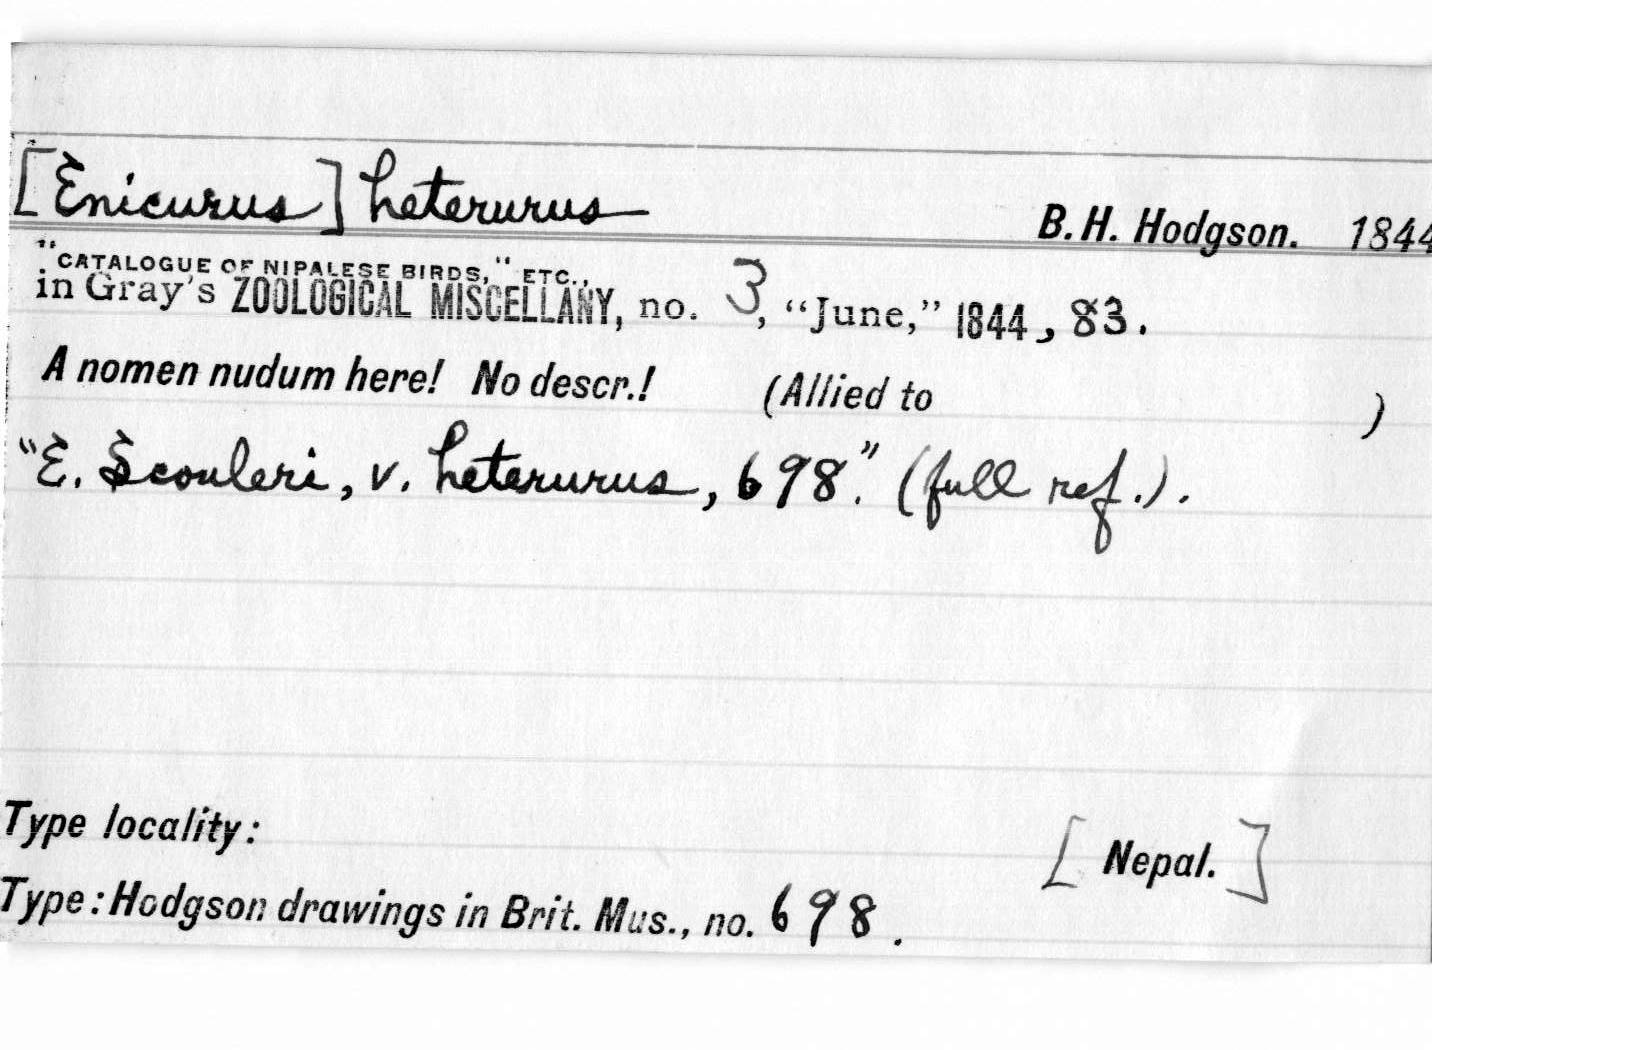 [Enicurus] heterurus B. H. Hodgson. 1844
"CATALOGUE OF NIPALESE BIRDS," ETC.,
in Gray's ZOOLOGICAL MISCELLANY, no. 3, "June," 1844, 83.
A nomen nudum here! No descr.! (Allied to )
"E. Scouleri, v. heterurus, 698." (full ref.).
Type locality: [Nepal.]
Type: Hodgson drawings in Brit. Mus., no. 698.